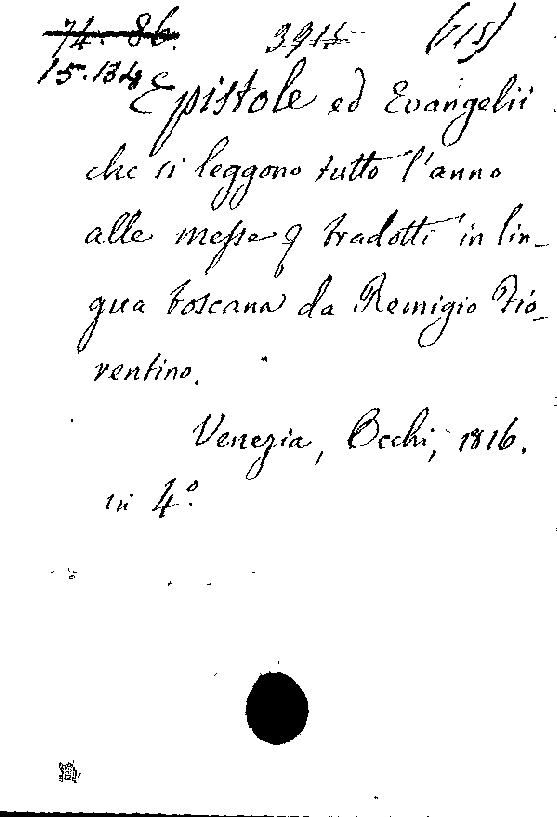 74. 86. 3915 (115)
15.134
Epistole ed Evangelii
che si leggono tutto l'anno
alle messe tradotti in lin-
gua toscana da Remigio Fio-
rentino.
Venezia, Occhi, 1816.
in 4º.